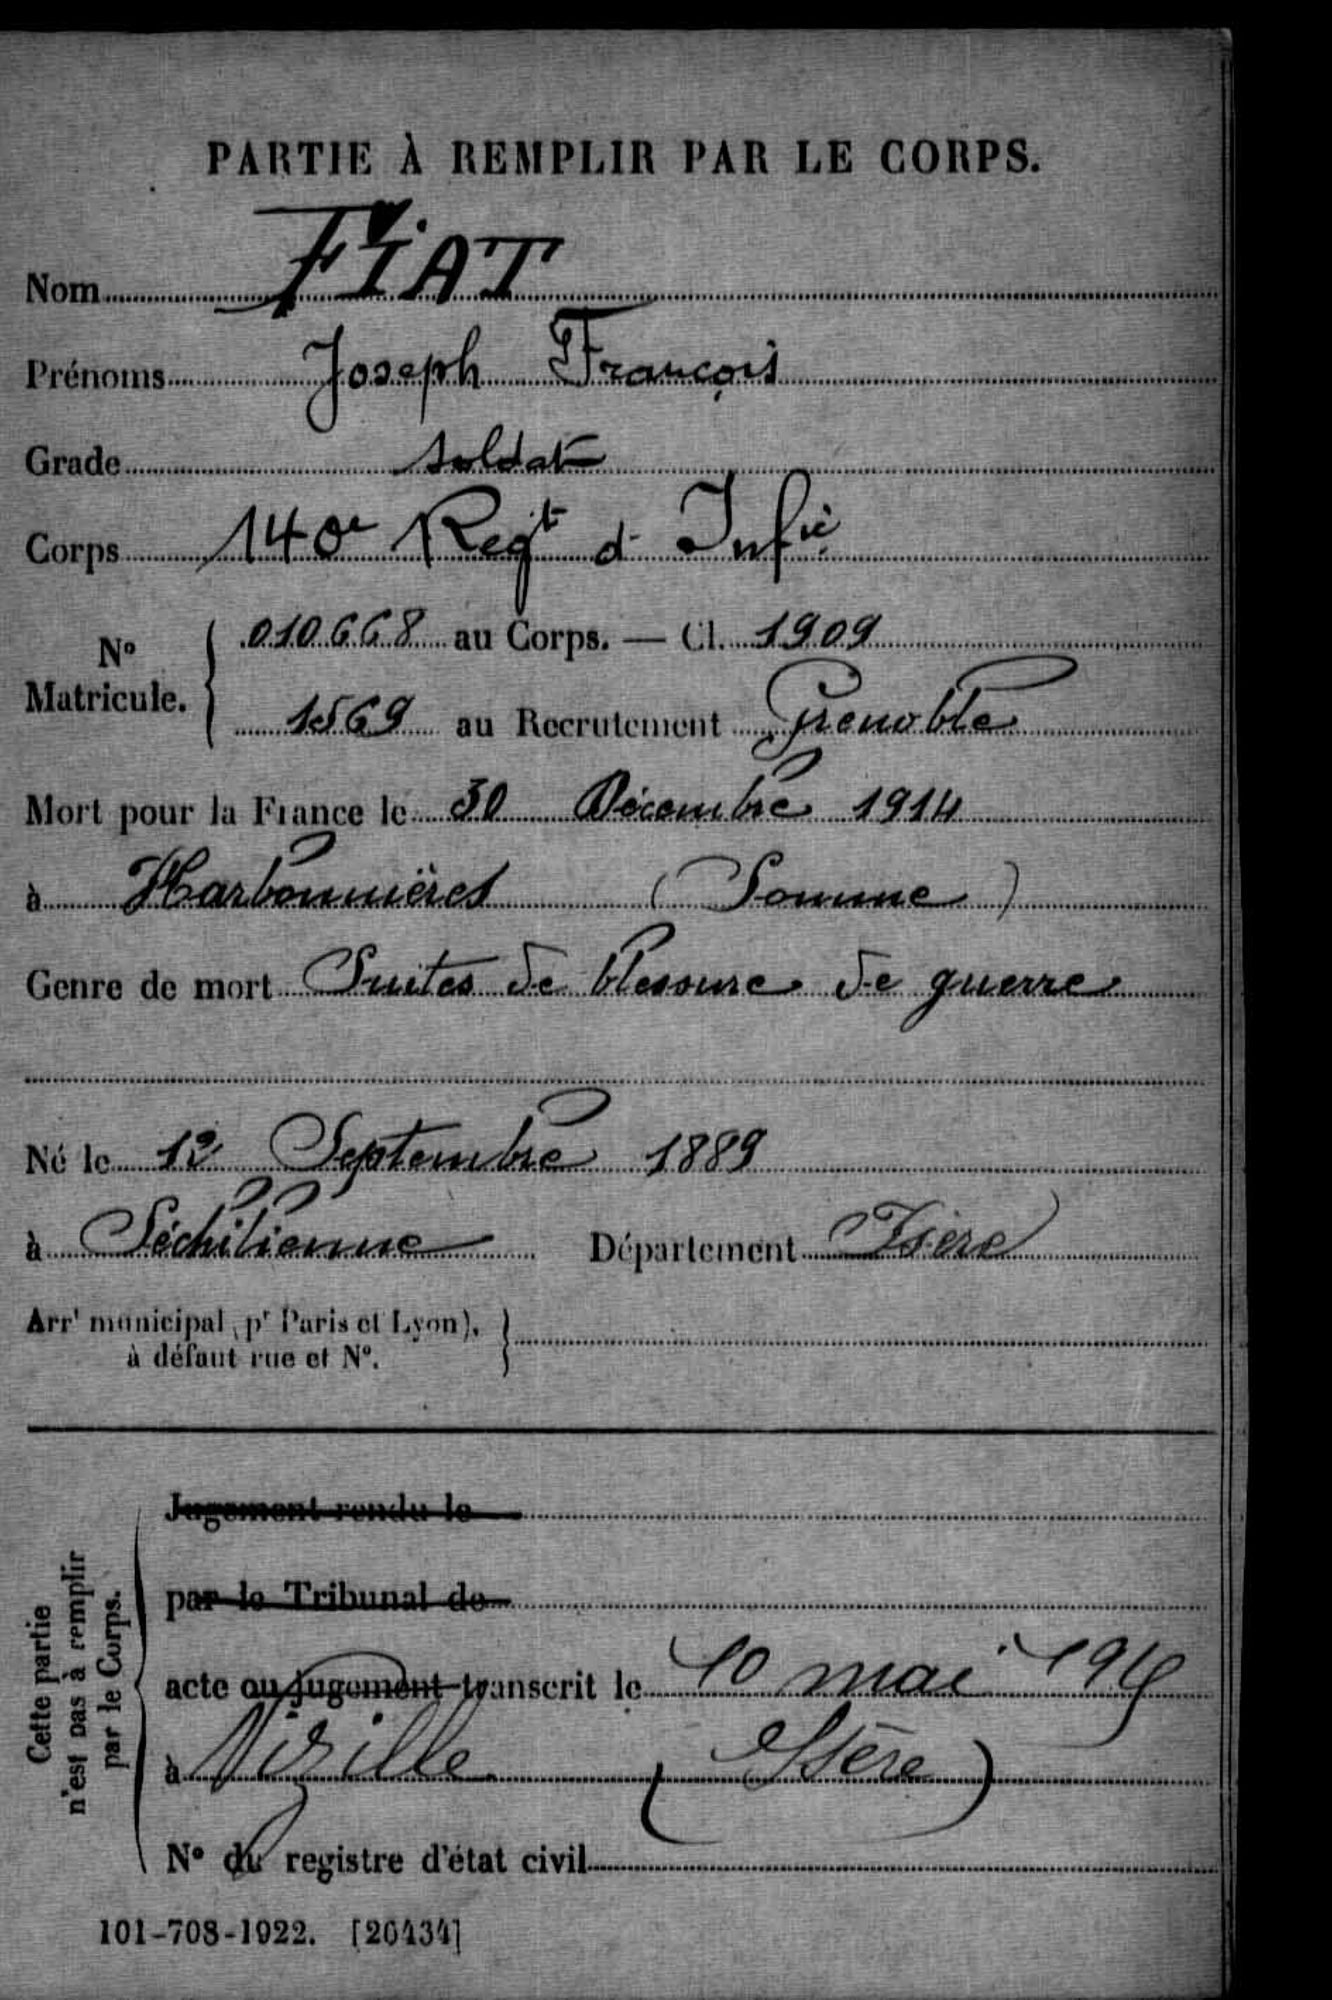 PARTIE À REMPLIR PAR LE CORPS.
Nom FIAT
Prénoms Joseph François
Grade soldat
Corps 140e Regt d' Infie
No Matricule. 010668 au Corps. — Cl. 1909
1569 au Recrutement Grenoble
Mort pour la France le 30 Décembre 1914
à Harbonnières (Somme)
Genre de mort Suites de blessure de guerre
Né le Septembre 1889
à Séchilienne Département Isère
Arrt municipal (pr Paris et Lyon),
à défaut rue et No.
Cette partie
n'est pas à remplir
par le Corps.
Jugement rendu le
par le Tribunal de
acte ou jugement transcrit le 10 mai
à Vizille (Isère)
No du registre d'état civil
101-708-1922. [26434]